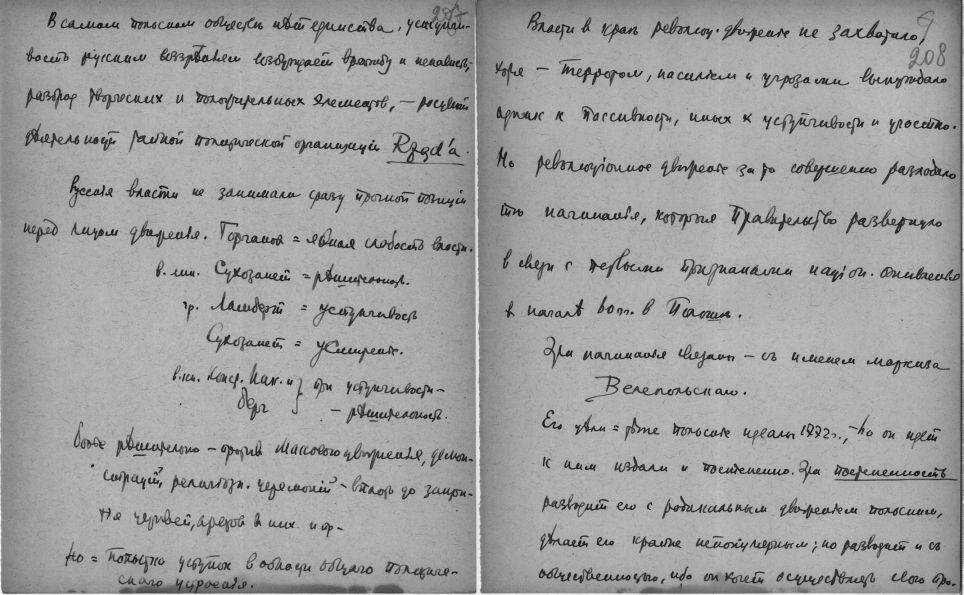 207
В самом польском обществе нет единства, уступчи-
вость русским воззрениям возбуждает вражду и ненависть,
разброд творческих и положительных элементов, —
деятельности тайной политической организации Rząd'a.
Русская власти не занимали сразу прочной позиции
перед лицом движения. Горчаков = явная слабость власти.
в. мин. Сухозанет = рѣшительность.
гр. Ламберт = уступчивость
Сухозанет = усмирение.
в. кн. Конст. Ник. и } при уступчивости —
Берг } — рѣшительность.
более рѣшительно — против массового движения, демон-
страций, религиозн. церемоний — вплоть до закры-
тия церквей, арестов в них и др —
Но = попытки уступок в области общаго политиче-
скаго устроения.
208
Власти в крае революц. движение не захватило,
хотя — террором, насилием и угрозами вынуждало
одних к пассивности, иных к уступчивости и участию.
Но революционное движение за то совершенно разладило
те начинания, которыя Правительство развернуло
в связи с первыми признаками націон. оживления
в началѣ 60 гг. в Польше.
Эти начинания связаны — съ именем маркиза
Велепольскаго.
Его цѣли = тѣже польские идеалы 1772 г., — но он идет
к ним издали и постепенно. Эта постепенность
разводит его с радикальным движением польским,
дѣлает его крайне непопулярным; но разводит и съ
общественностью, ибо он хочет осуществлять свою про-